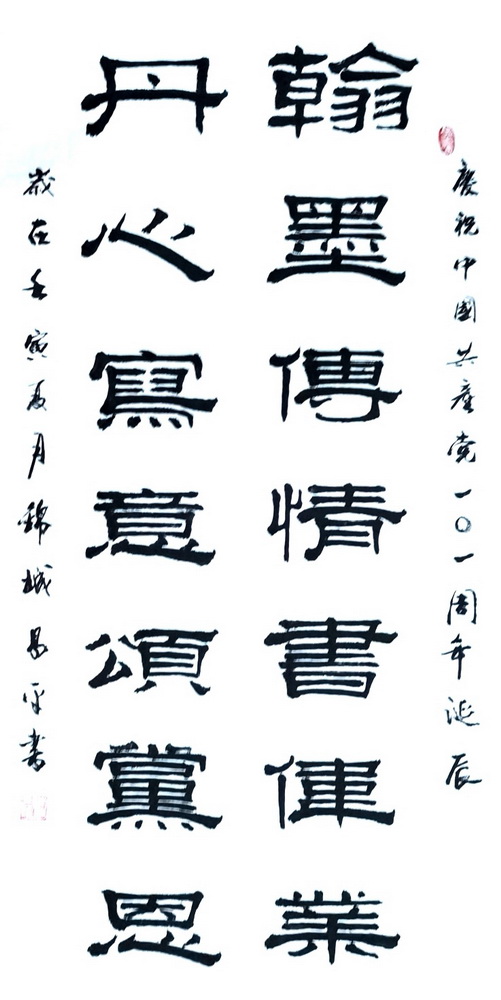 慶祝中國共產党一〇一周年诞辰
翰墨傳情書偉業
丹心寫意頌黨恩
歲在壬寅夏月錦城易平書